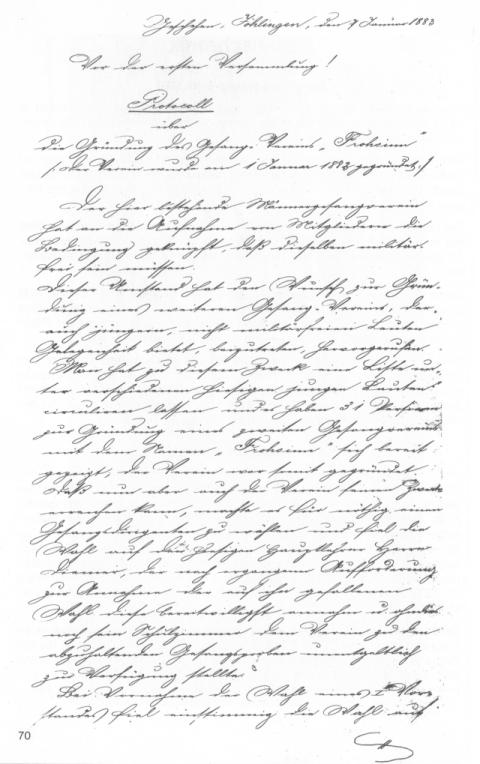 Geschehen, Jöhlingen, den 7 Januar 1883
Vor der ersten Versammlung!
Protocoll
über
die Gründung des Gesang-Vereins „Frohsinn“
/: Der Verein wurde am 1 Januar 1883 gegründet :/
Der hier bestehende Männergesangverein
hat an die Aufnahme von Mitgliedern die
Bedingung geknüpft, daß dieselben militär-
frei sein müssen.
Dieser Umstand hat den Wunsch zur Grün-
dung eines weiteren Gesang-Vereins, der
auch jüngern, nicht militärfreien Leuten
Gelegenheit bietet, beizutreten, hervorgerufen.
Man hat zu diesem Zweck eine Liste un-
ter verschiedenen hiesigen jungen Leuten
circuliren lassen und es haben 31 Personen
zur Gründung eines zweiten Gesangvereins
mit dem Namen „Frohsinn“ sich bereit
gezeigt, der Verein war somit gegründet.
Daß nun aber auch der Verein seinen Zweck
erreichen kann, machte es sich nöthig einen
Gesangsdirigenten zu wählen und fiel die
Wahl auf den hiesigen Hauptlehrer Herrn
der nach ergangener Aufforderung
zur Annahme der auf ihn gefallenen
Wahl diese bereitwilligst annahm u.
noch sein Schulzimmer dem Verein zu den
abzuhaltenden Gesangsproben unentgeltlich
zu Verfügung stellte.
Bei Vornahme der Wahl eines I Vor-
standes fiel einstimmig die Wahl auf
70